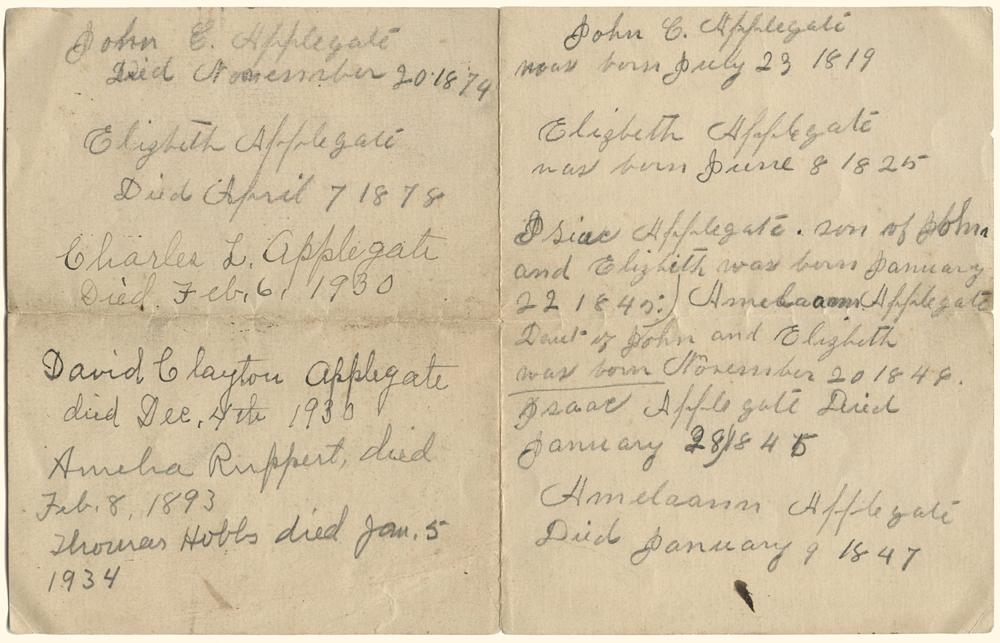 John C. Applegate
Died November 20 1874
Elizbeth Applegate
Died April 7 1878
Charles L. Applegate
Died. Feb, 6, 1930
David Clayton Applegate
died Dec, 4th 1930
Amelia Ruppert, died
Feb. 8, 1893
Thomas Hobbs died Jan. 5
1934
John C. Applegate
was born July 23 1819
Elizbeth Applegate
was born June 8 1825
Isiac Applegate. son of John
and Elizbeth was born January
22 1845;) Amelaann Applegate
Daut of John and Elizbeth
was born November 20 1848.
Isaac Applegate Died
January 28 1845
Amelaann Applegate
Died January 9 1847